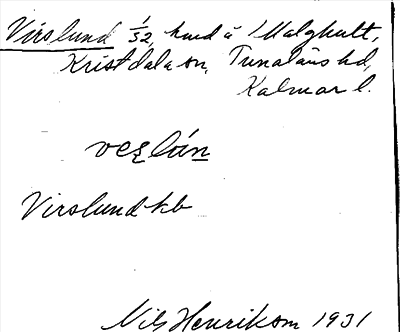 Virslund 1/32, hmd å 1 Malghult,
Kristdala sn, Tunaläns hd,
Kalmar l.
veslán
Virslund kb
Nils Henrikson 1931